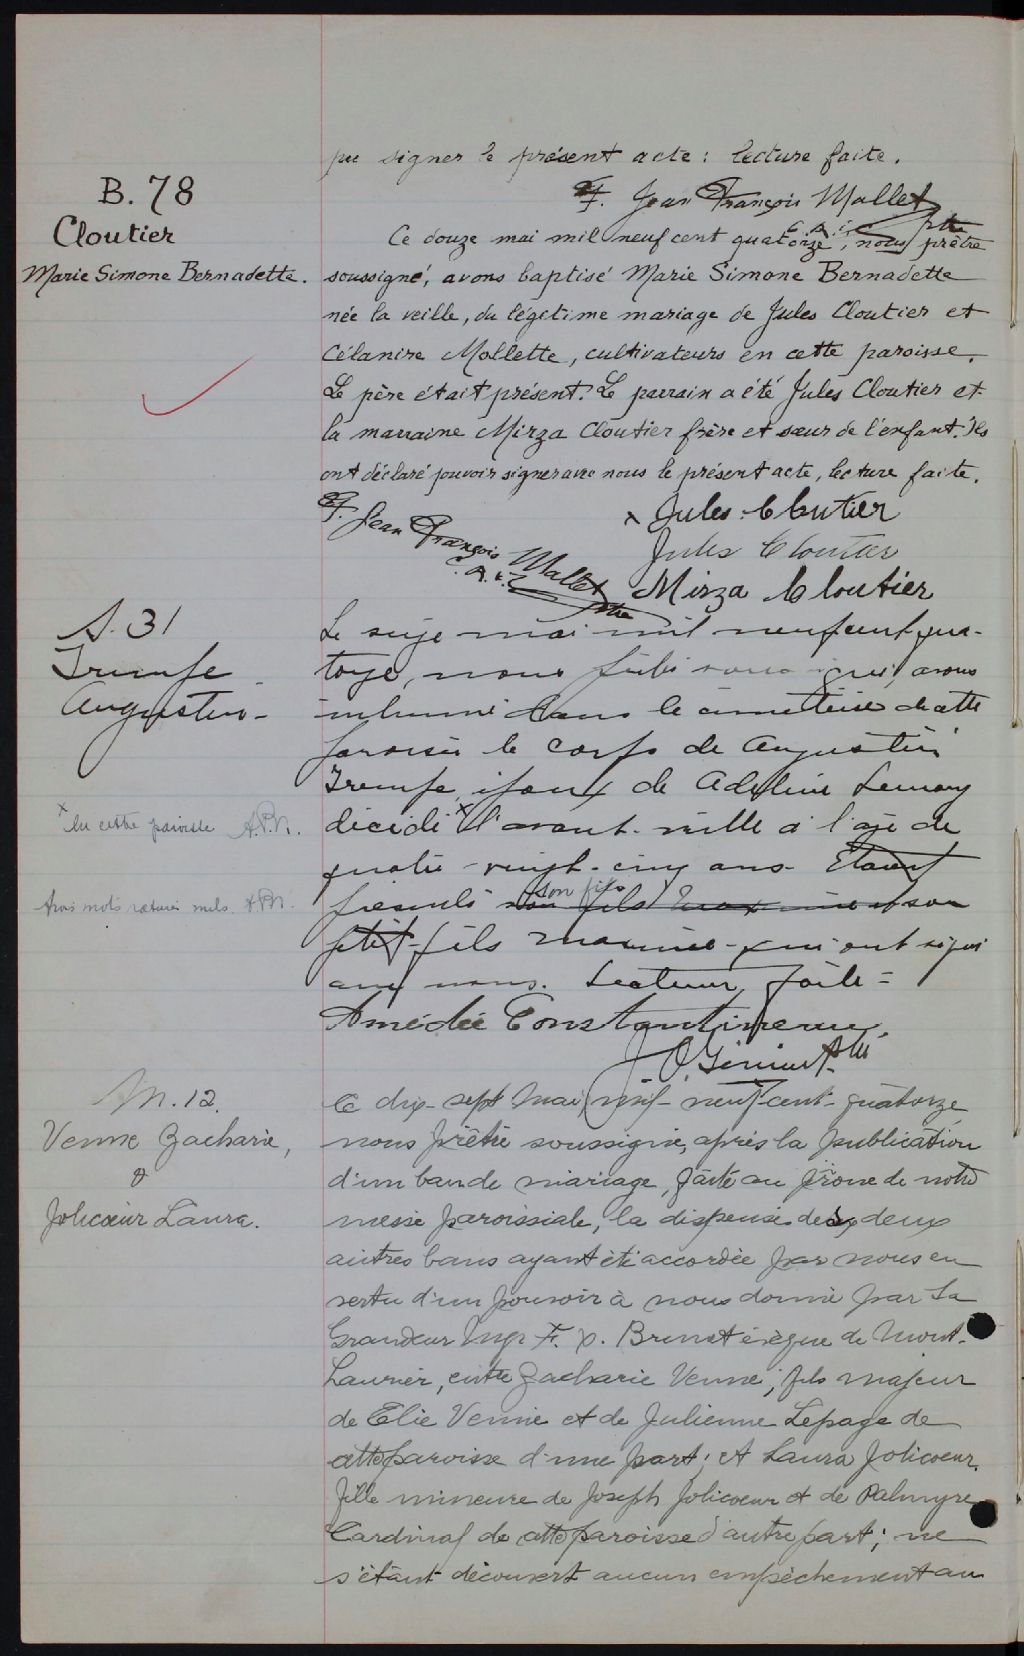 pu signer le présent acte : lecture faite.
F. Jean François Mallet
C.R.I. ptre
B. 78
Cloutier
Marie Simone Bernadette.
Ce douze mai mil neuf cent quatorze, nous prêtre
soussigné, avons baptisé Marie Simone Bernadette
née la veille, du légitime mariage de Jules Cloutier et
Célanire Mollette, cultivateurs en cette paroisse.
Le père était présent. Le parrain a été Jules Cloutier et
la marraine Mirza Cloutier frère et sœur de l'enfant. Ils
ont déclaré pouvoir signer avec nous le présent acte, lecture faite.
Jules Cloutier
F. Jean François Mallet
C.R.I. ptre
Jules Cloutier
Mirza Cloutier
S. 31
Augustin
Le seize mai mil neuf cent qua-
torze, nous soussigné, avons
inhumé dans le cimetière de cette
paroisse le corps de Augustin
époux de Adeline Lemay
décédé x l'avant-veille à l'âge de
x en cette paroisse
quatre-vingt-cinq ans. Etaient
présents son fils
trois mots raturés nuls
petit-fils qui ont signé
avec nous. Lecture faite =
Amédée Constantineau
M. 12.
Venne Zacharie,
&
Jolicœur Laura.
Ce dix-sept Mai mil-neuf-cent-quatorze,
nous prêtre soussigné, après la publication
d'un ban de mariage, faite au prône de notre
messe paroissiale, la dispense des deux
autres bans ayant été accordée par nous en
vertu d'un pouvoir à nous donné par Sa
Grandeur Mgr F. X. Brunet évêque de Mont-
Laurier, entre Zacharie Venne, fils majeur
de Elie Venne et de Julienne Lepage de
cette paroisse d'une part; et Laura Jolicoeur,
fille mineure de Joseph Jolicoeur et de Palmyre
Cardinal de cette paroisse d'autre part; ne
s'étant découvert aucun empêchement au